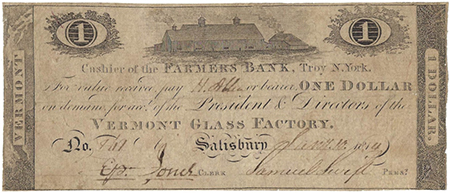 1
1
VERMONT
1 DOLLAR.
Cashier of the FARMERS BANK, Troy N. York.
For value received, pay or bearer, ONE DOLLAR
on demand, for acct. of the President & Directors of the
VERMONT GLASS FACTORY.
No. Salisbury
CLERK Samuel Swift PREST.